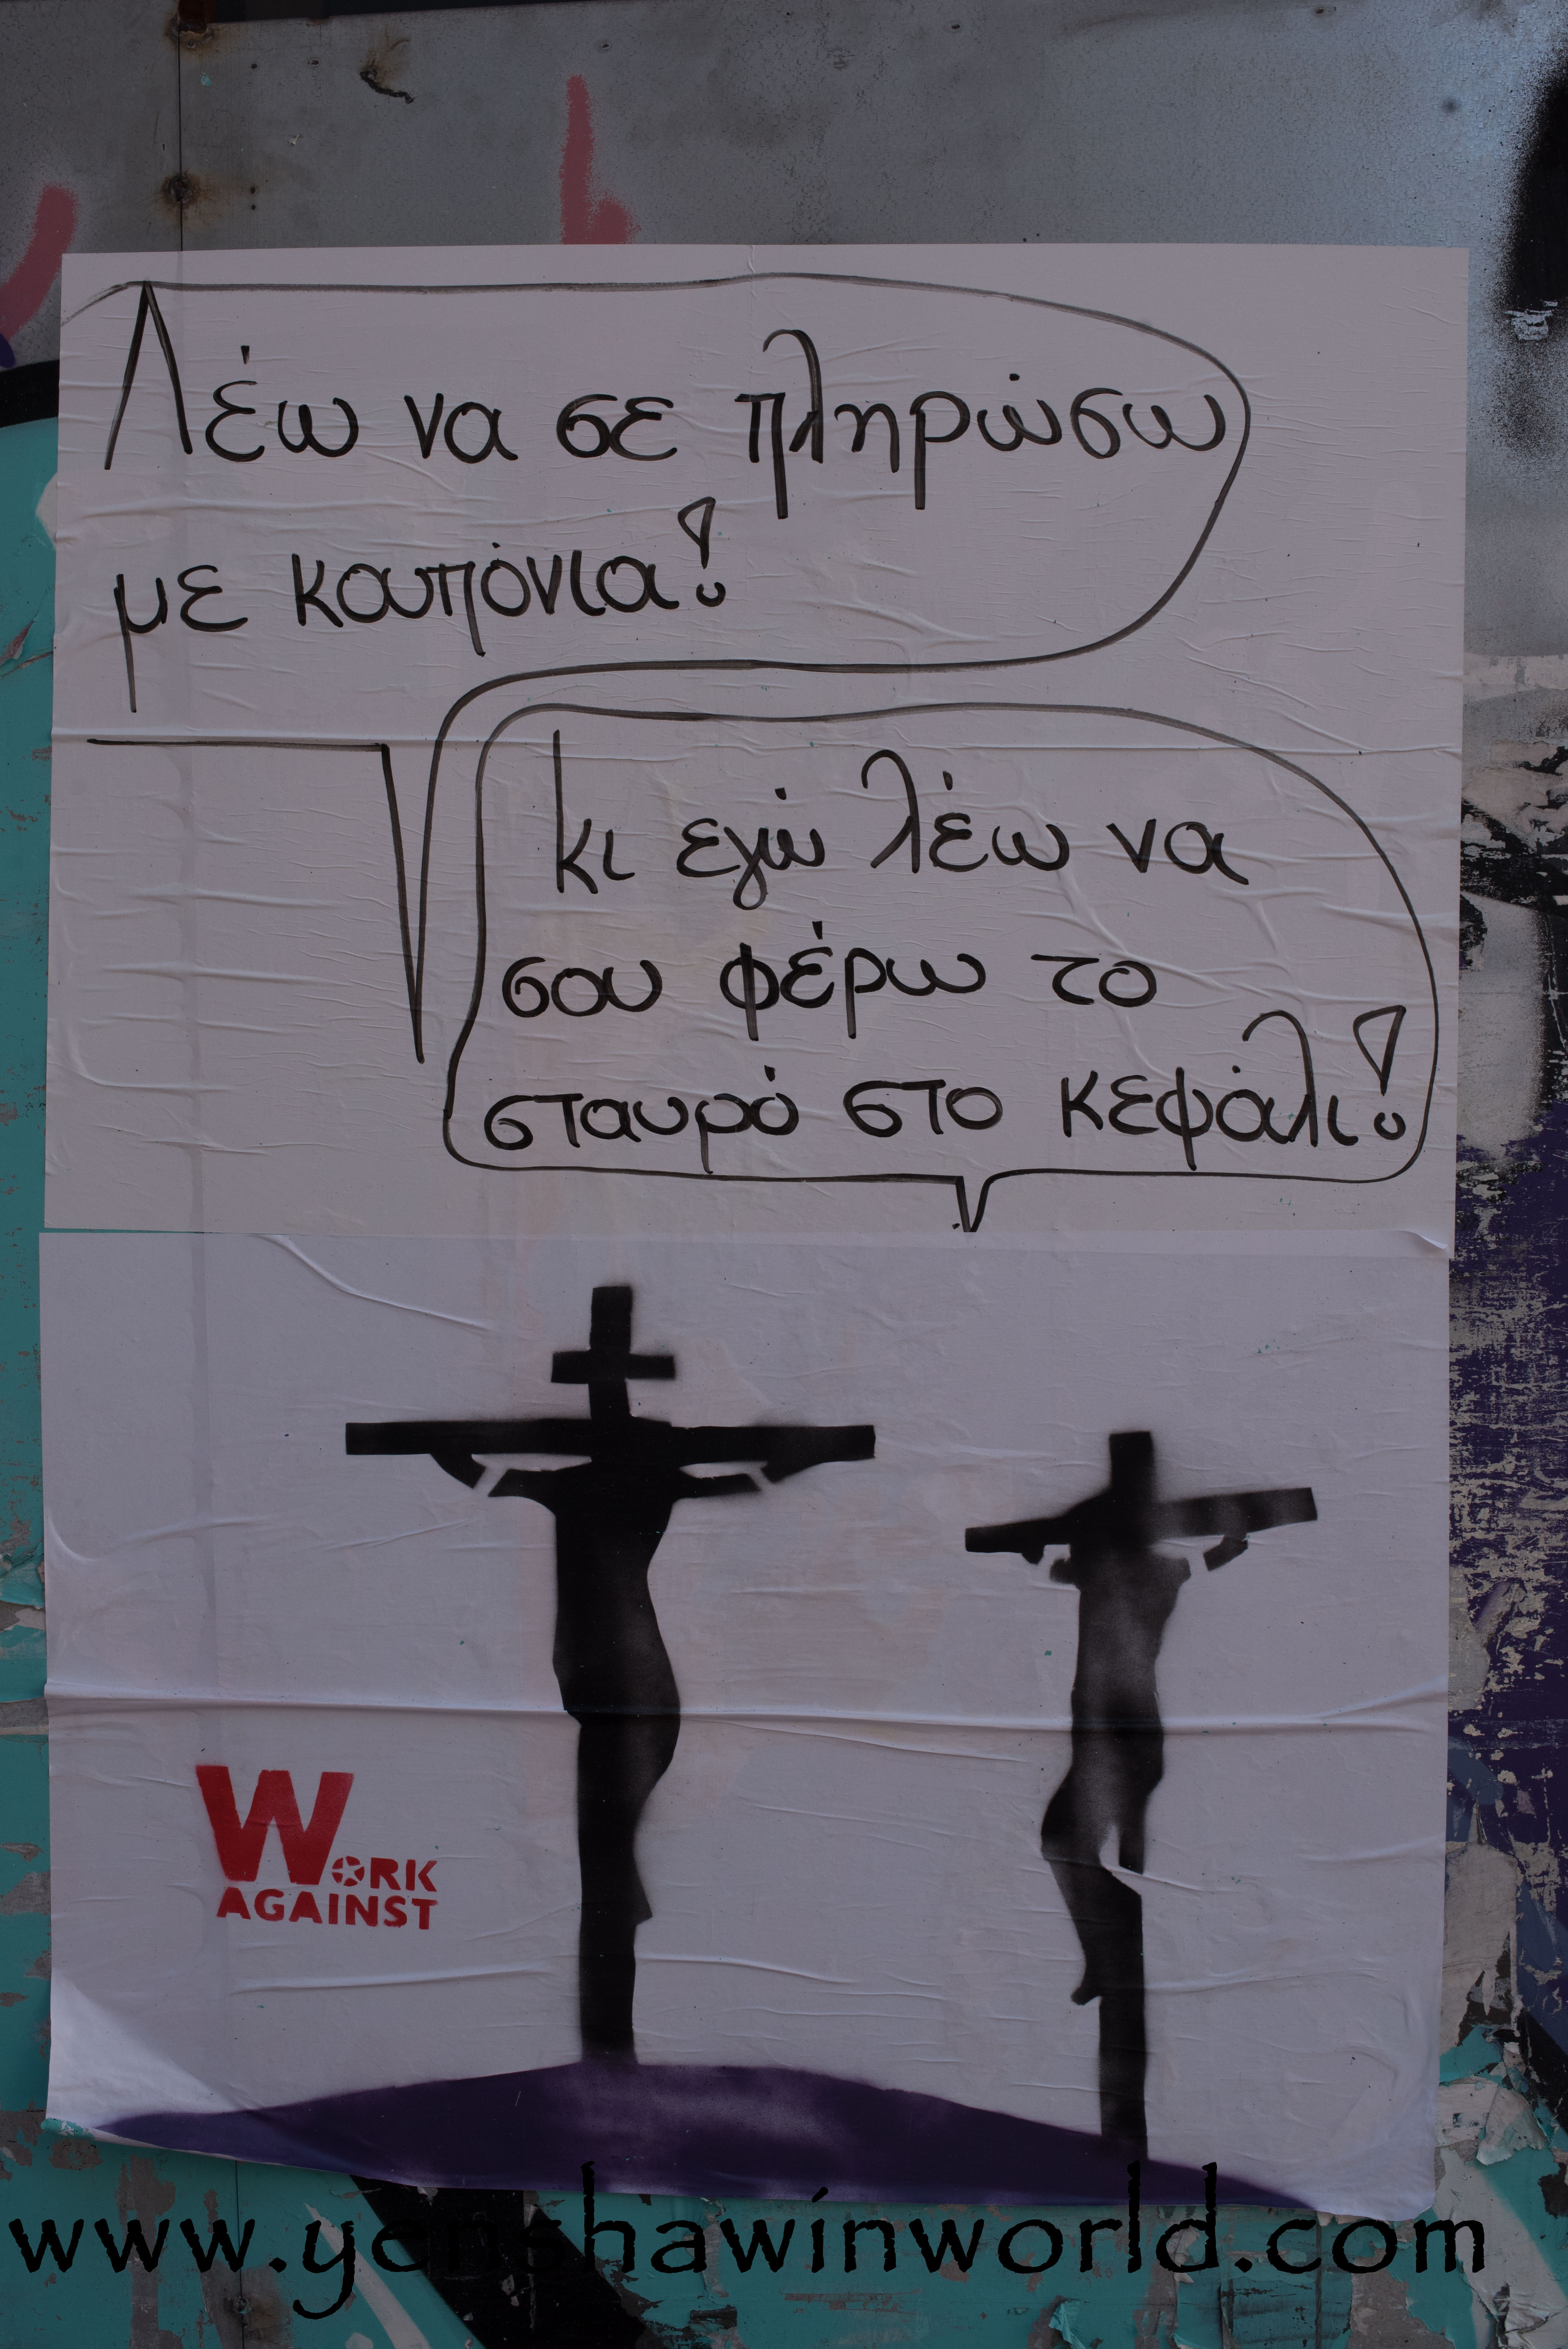 Λέω να σε πληρώσω
με κουπόνια!
κι εγώ λέω να
σου φέρω το
σταυρό στο κεφάλι!
WORK
AGAINST
www.yenshawinworld.com